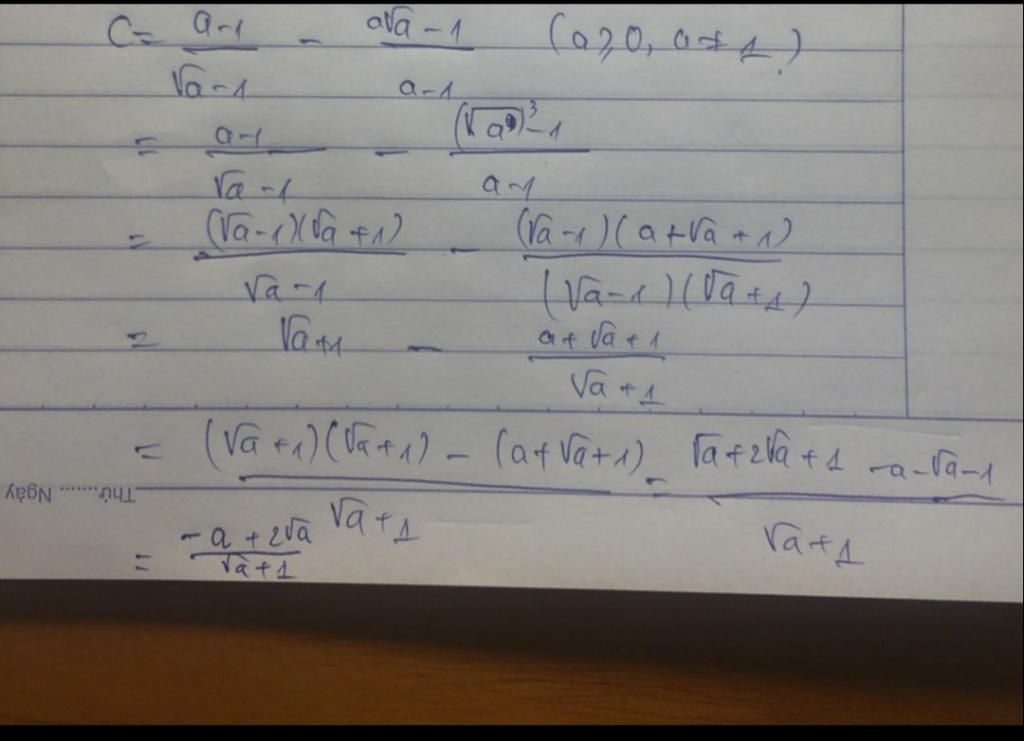 C = \frac{a-1}{\sqrt{a}-1} - \frac{a\sqrt{a}-1}{a-1} (a ⩾ 0, a ≠ 1)
= \frac{a-1}{\sqrt{a}-1} - \frac{(\sqrt{a})^3-1}{a-1}
= \frac{(\sqrt{a}-1)(\sqrt{a}+1)}{\sqrt{a}-1} - \frac{(\sqrt{a}-1)(a+\sqrt{a}+1)}{(\sqrt{a}-1)(\sqrt{a}+1)}
= \sqrt{a}+1 - \frac{a+\sqrt{a}+1}{\sqrt{a}+1}
= \frac{(\sqrt{a}+1)(\sqrt{a}+1)-(a+\sqrt{a}+1)}{\sqrt{a}+1} = \frac{\sqrt{a}+2\sqrt{a}+1-a-\sqrt{a}-1}{\sqrt{a}+1}
Thứ........ Ngày
= \frac{-a+2\sqrt{a}}{\sqrt{a}+1}